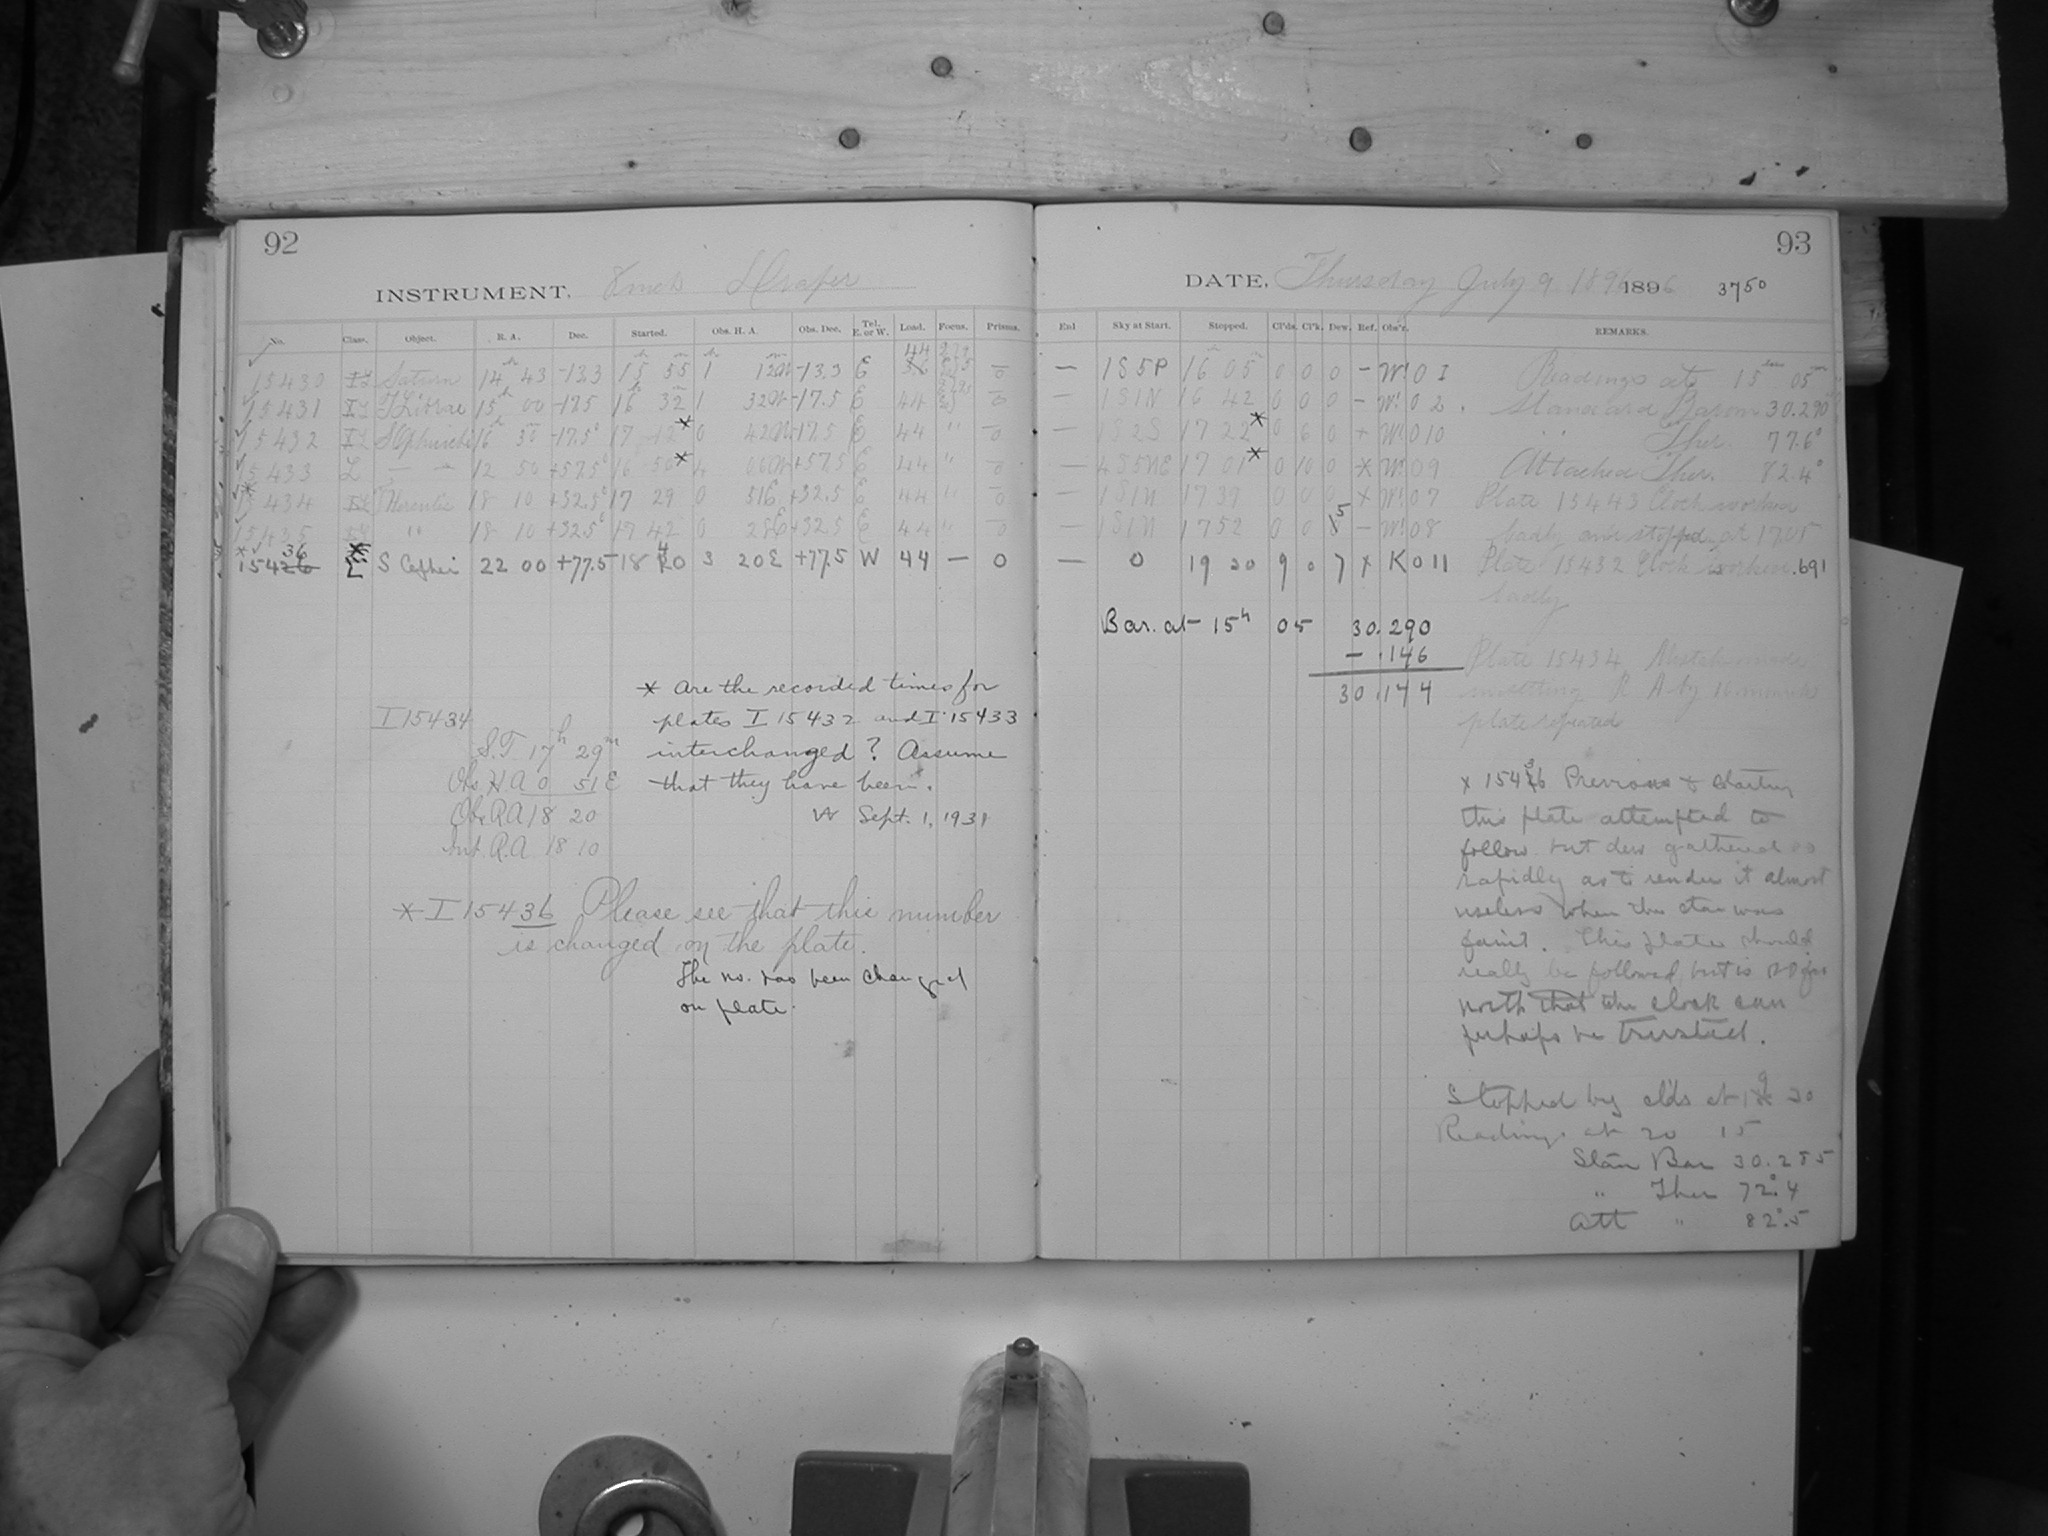 92
INSTRUMENT, 8 inch Draper
No. Class. Object. R. A. Dec. Started. Obs. H. A. Obs. Dec. Tel. E. or W. Load. Focus. Prisms.
15430 Saturn 14h 43 -13.3 15h 55m 1h 12m W -13.3 E 44 0
15431 T Librae 15h 00 -17.5 16h 32m 1 32W -17.5 E 44 0
15432 S Ophiuchi 16h 30 -17.5° 17 12* 0 42W -17.5 E 44 " 0
15433 L — 12 50 +57.5° 16 50* 4 00W +57.5 E 44 " 0
*15434 18 10 +32.5° 17 29 0 51E +32.5 E 44 " 0
15435 " 18 10 +32.5° 17 42 0 28E +32.5 E 44 " 0
* 36
15426 L S Cephei 22 00 +77.5 18 40 3 20E +77.5 W 44 — 0
* Are the recorded times for
plates I 15432 and I 15433
interchanged? Assume
that they have been.
W Sept. 1, 1931
I 15434
S.T 17h 29m
Obs. H A 0 51 E
Obs. R A 18 20
Int. R.A 18 10
* I 15436 Please see that this number
is changed on the plate.
The no. has been changed
on plate.
93
DATE, Thursday July 9 1896 1896 3750
Enl Sky at Start. Stopped. Cl'ds. Cl'k. Dew. Ref. Obs'r. REMARKS.
— 1S5P 16h 05m 0 0 0 — W. 01 Readings at 15 05m
1S1N 16 42 0 0 0 — W. 02 Standard Barom 30.290
— 1S2S 17 22* 0 6 0 + W. 010 " Ther. 77.6°
— 4S5NE 17 01* 0 10 0 X W. 09 Attached Ther. 82.4°
— 1S1N 17 39 0 0 0 X W. 07 Plate 15443 Clock worked
— 1S1N 17 52 0 0 5 — W. 08 badly and stopped at 1705
— 0 19 20 9 0 7 X K 011 Plate 15432 Clock worked .691
badly
Bar. at 15h 05 30.290
— .146
30.144
Plate 15434 Mistake made
in setting R A by 10 minutes
plate repeated
x 15436 Previous to starting
this plate attempted to
follow but dew gathered so
rapidly as to render it almost
useless when the star was
faint. This plate should
really be followed, but is so far
north that the clock can
perhaps be trusted.
Stopped by clds at 19 20
Readings at 20 15
Stan Bar 30.285
" Ther 72°.4
Att " 82°.5